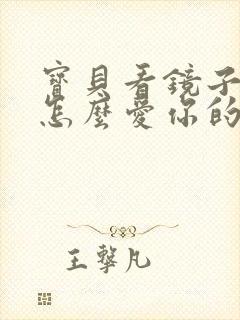 寶貝看鏡子
怎麼愛你的
王擊凡